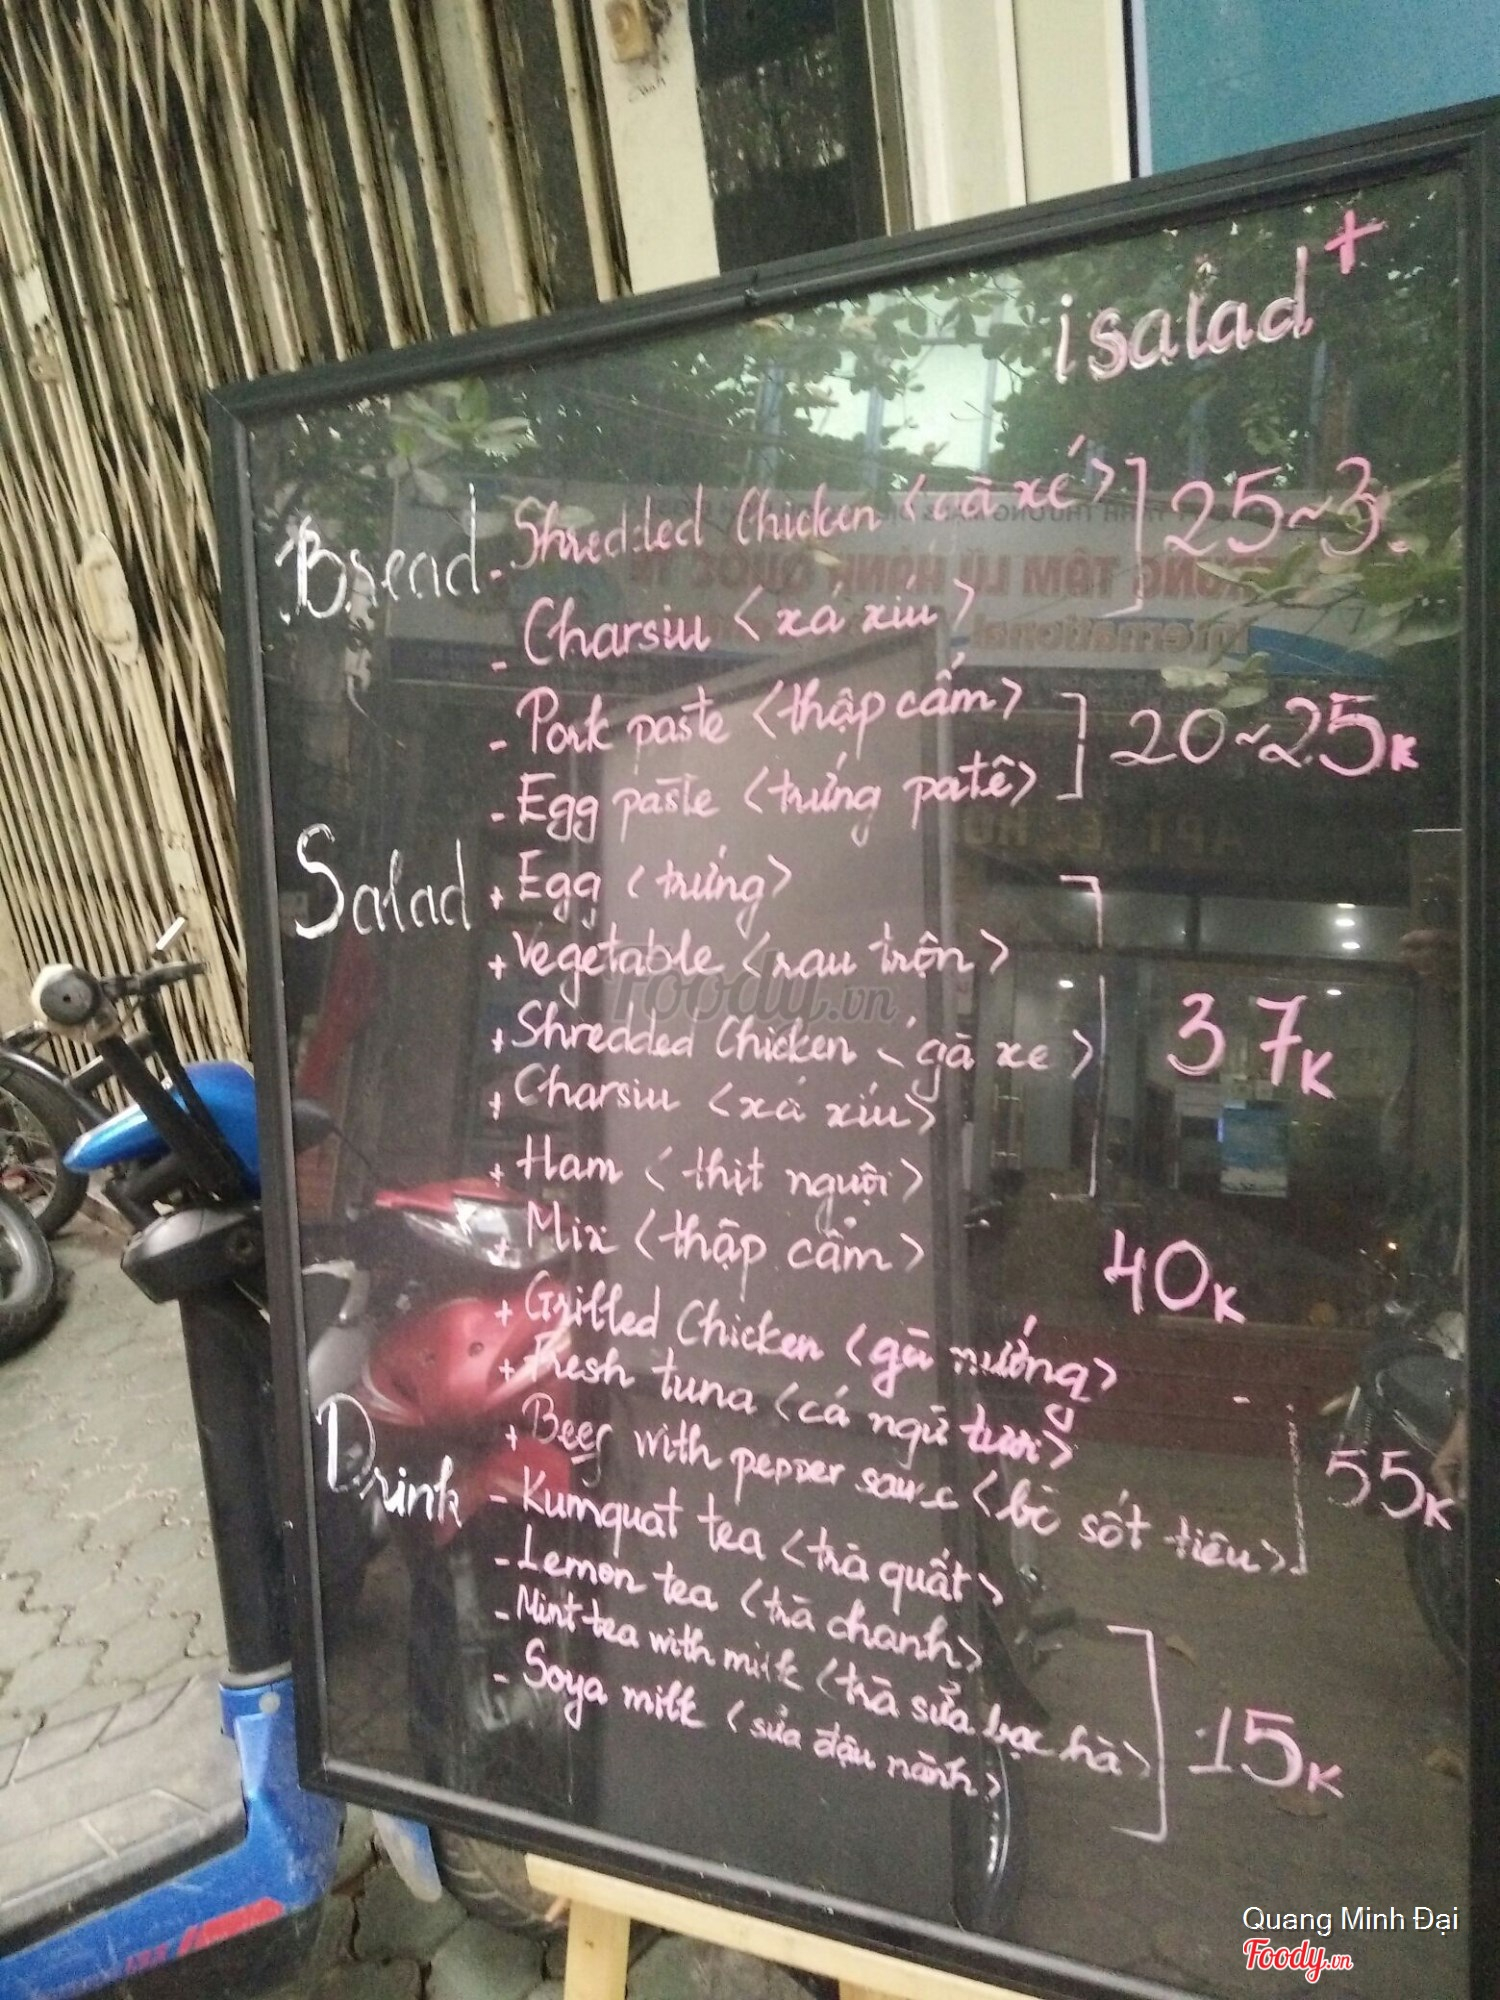 isalad+
Bread - Shredded Chicken <gà xé> 25~3
- Charsiu <xá xíu>
- Pork paste <thập cẩm> 20~25K
- Egg paste <trứng patê>
Salad + Egg <trứng>
+ Vegetable <rau trộn>
+ Shredded Chicken <gà xe> 37K
+ Charsiu <xá xíu>
+ Ham <thịt nguội>
+ Mix <thập cẩm> 40K
+ Grilled Chicken <gà nướng>
+ Fresh tuna <cá ngừ tươi> 55K
+ Beef with pepper sauce <bò sốt tiêu>
Drink - Kumquat tea <trà quất>
- Lemon tea <trà chanh>
- Mint tea with milk <trà sữa bạc hà> 15K
- Soya milk <sữa đậu nành>
Foody.vn
Quang Minh Đại
Foody.vn